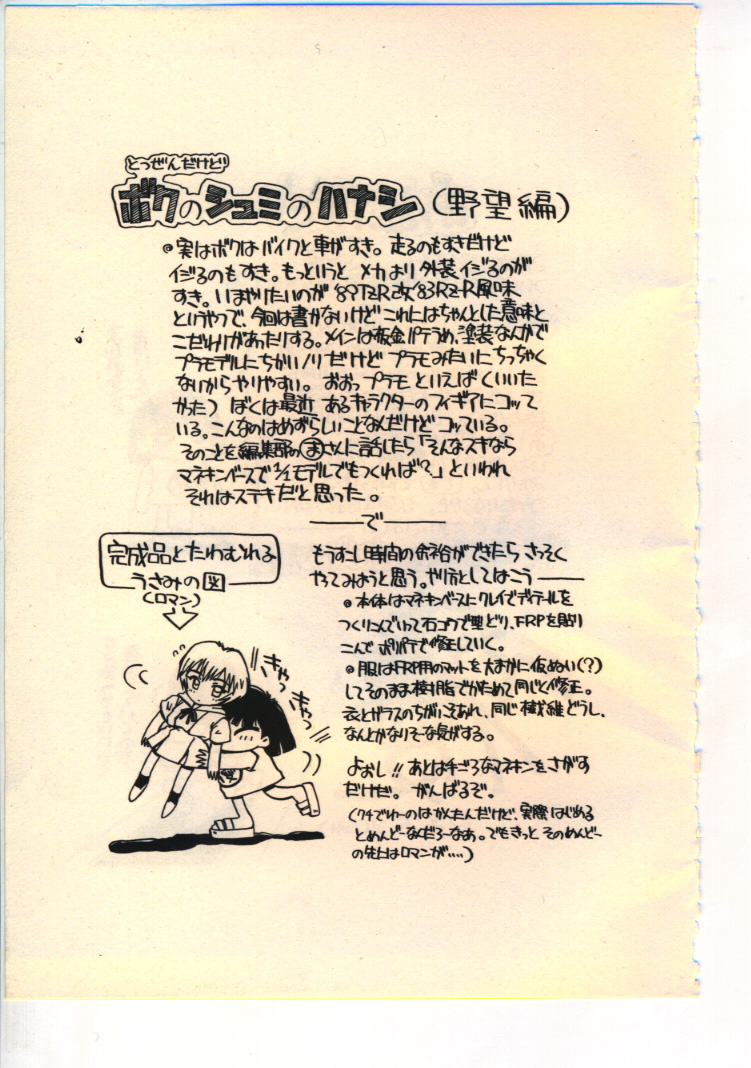 とつぜんだけど
ボクのシュミのハナシ(野望編)
◎実はボクはバイクと車がすき。走るのもすきだけど
イジるのもすき。もっというと メカより 外装イジるのが
すき。いまやりたいのが '89TZR改'83RZ-R風味
というやつで、今回は書かないけど これにはちゃんとした意味と
こだわりがあったりする。メインは板金パテうめ、塗装なんかで
プラモデルにちかいノリだけど プラモみたいにちっちゃく
ないからやりやすい。おおっプラモ といえば(いいた
かった) ぼくは最近 あるキャラクターのフィギアにコッて
いる。こんなのはめずらしいことなんだけどコッている。
そのことを編集部のまさんに話したら「そんなスキなら
マネキンベースで1/1モデルでもつくれば?」といわれ
それはステキだと思った。
で
完成品とたわむれる
うさみの図
(ロマン)
キャッ キャッ
もうすこし時間の余裕ができたら さっそく
やってみようと思う。やり方としてはこう――
◎本体はマネキンベースにクレイでディテールを
つくりこんでいって石コウで型どり、FRPを貼り
こんで ポリパテで修正していく。
◎服はFRP用のマットを大まかに仮ぬい(?)
してそのまま樹脂でかためて同じく修正。
衣とガラスのちがいこそあれ、同じ繊維どうし、
なんとかなりそーな気がする。
よおし!! あとは手ごろなマネキンをさがす
だけだ。がんばるぞ。
(クチでゆーのはかんたんだけど、実際はじめる
とめんどーなんだろーなあ。でもきっと そのめんどー
の先にはロマンが....)